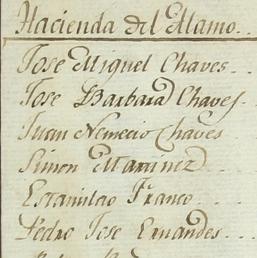 Hacienda del Alamo..
Jose Miguel Chaves...
Jose Barbara Chaves.
Juan Nemecio Chaves
Simon Martinez...
Estanislao Franco....
Pedro Jose Ernandes...